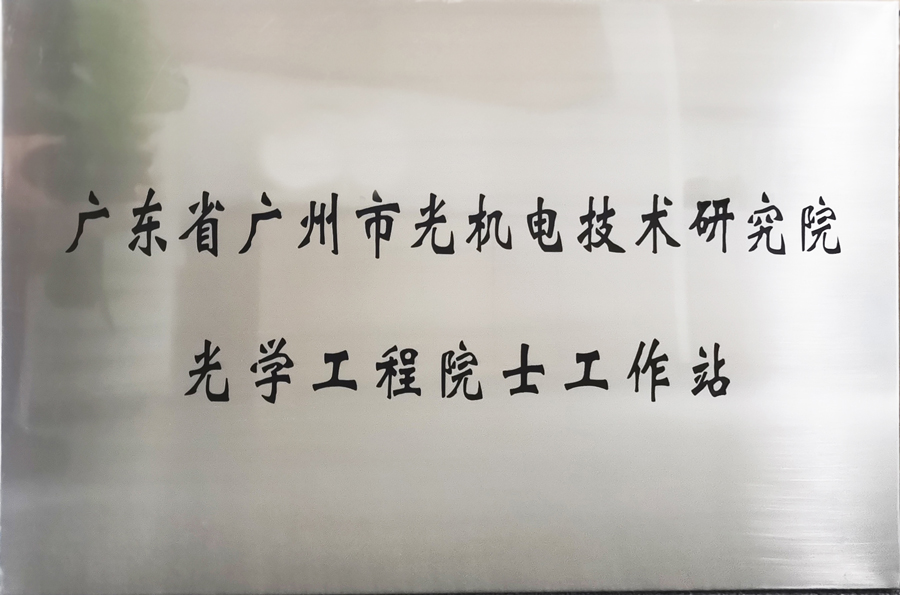 广东省广州市光机电技术研究院
光学工程院士工作站